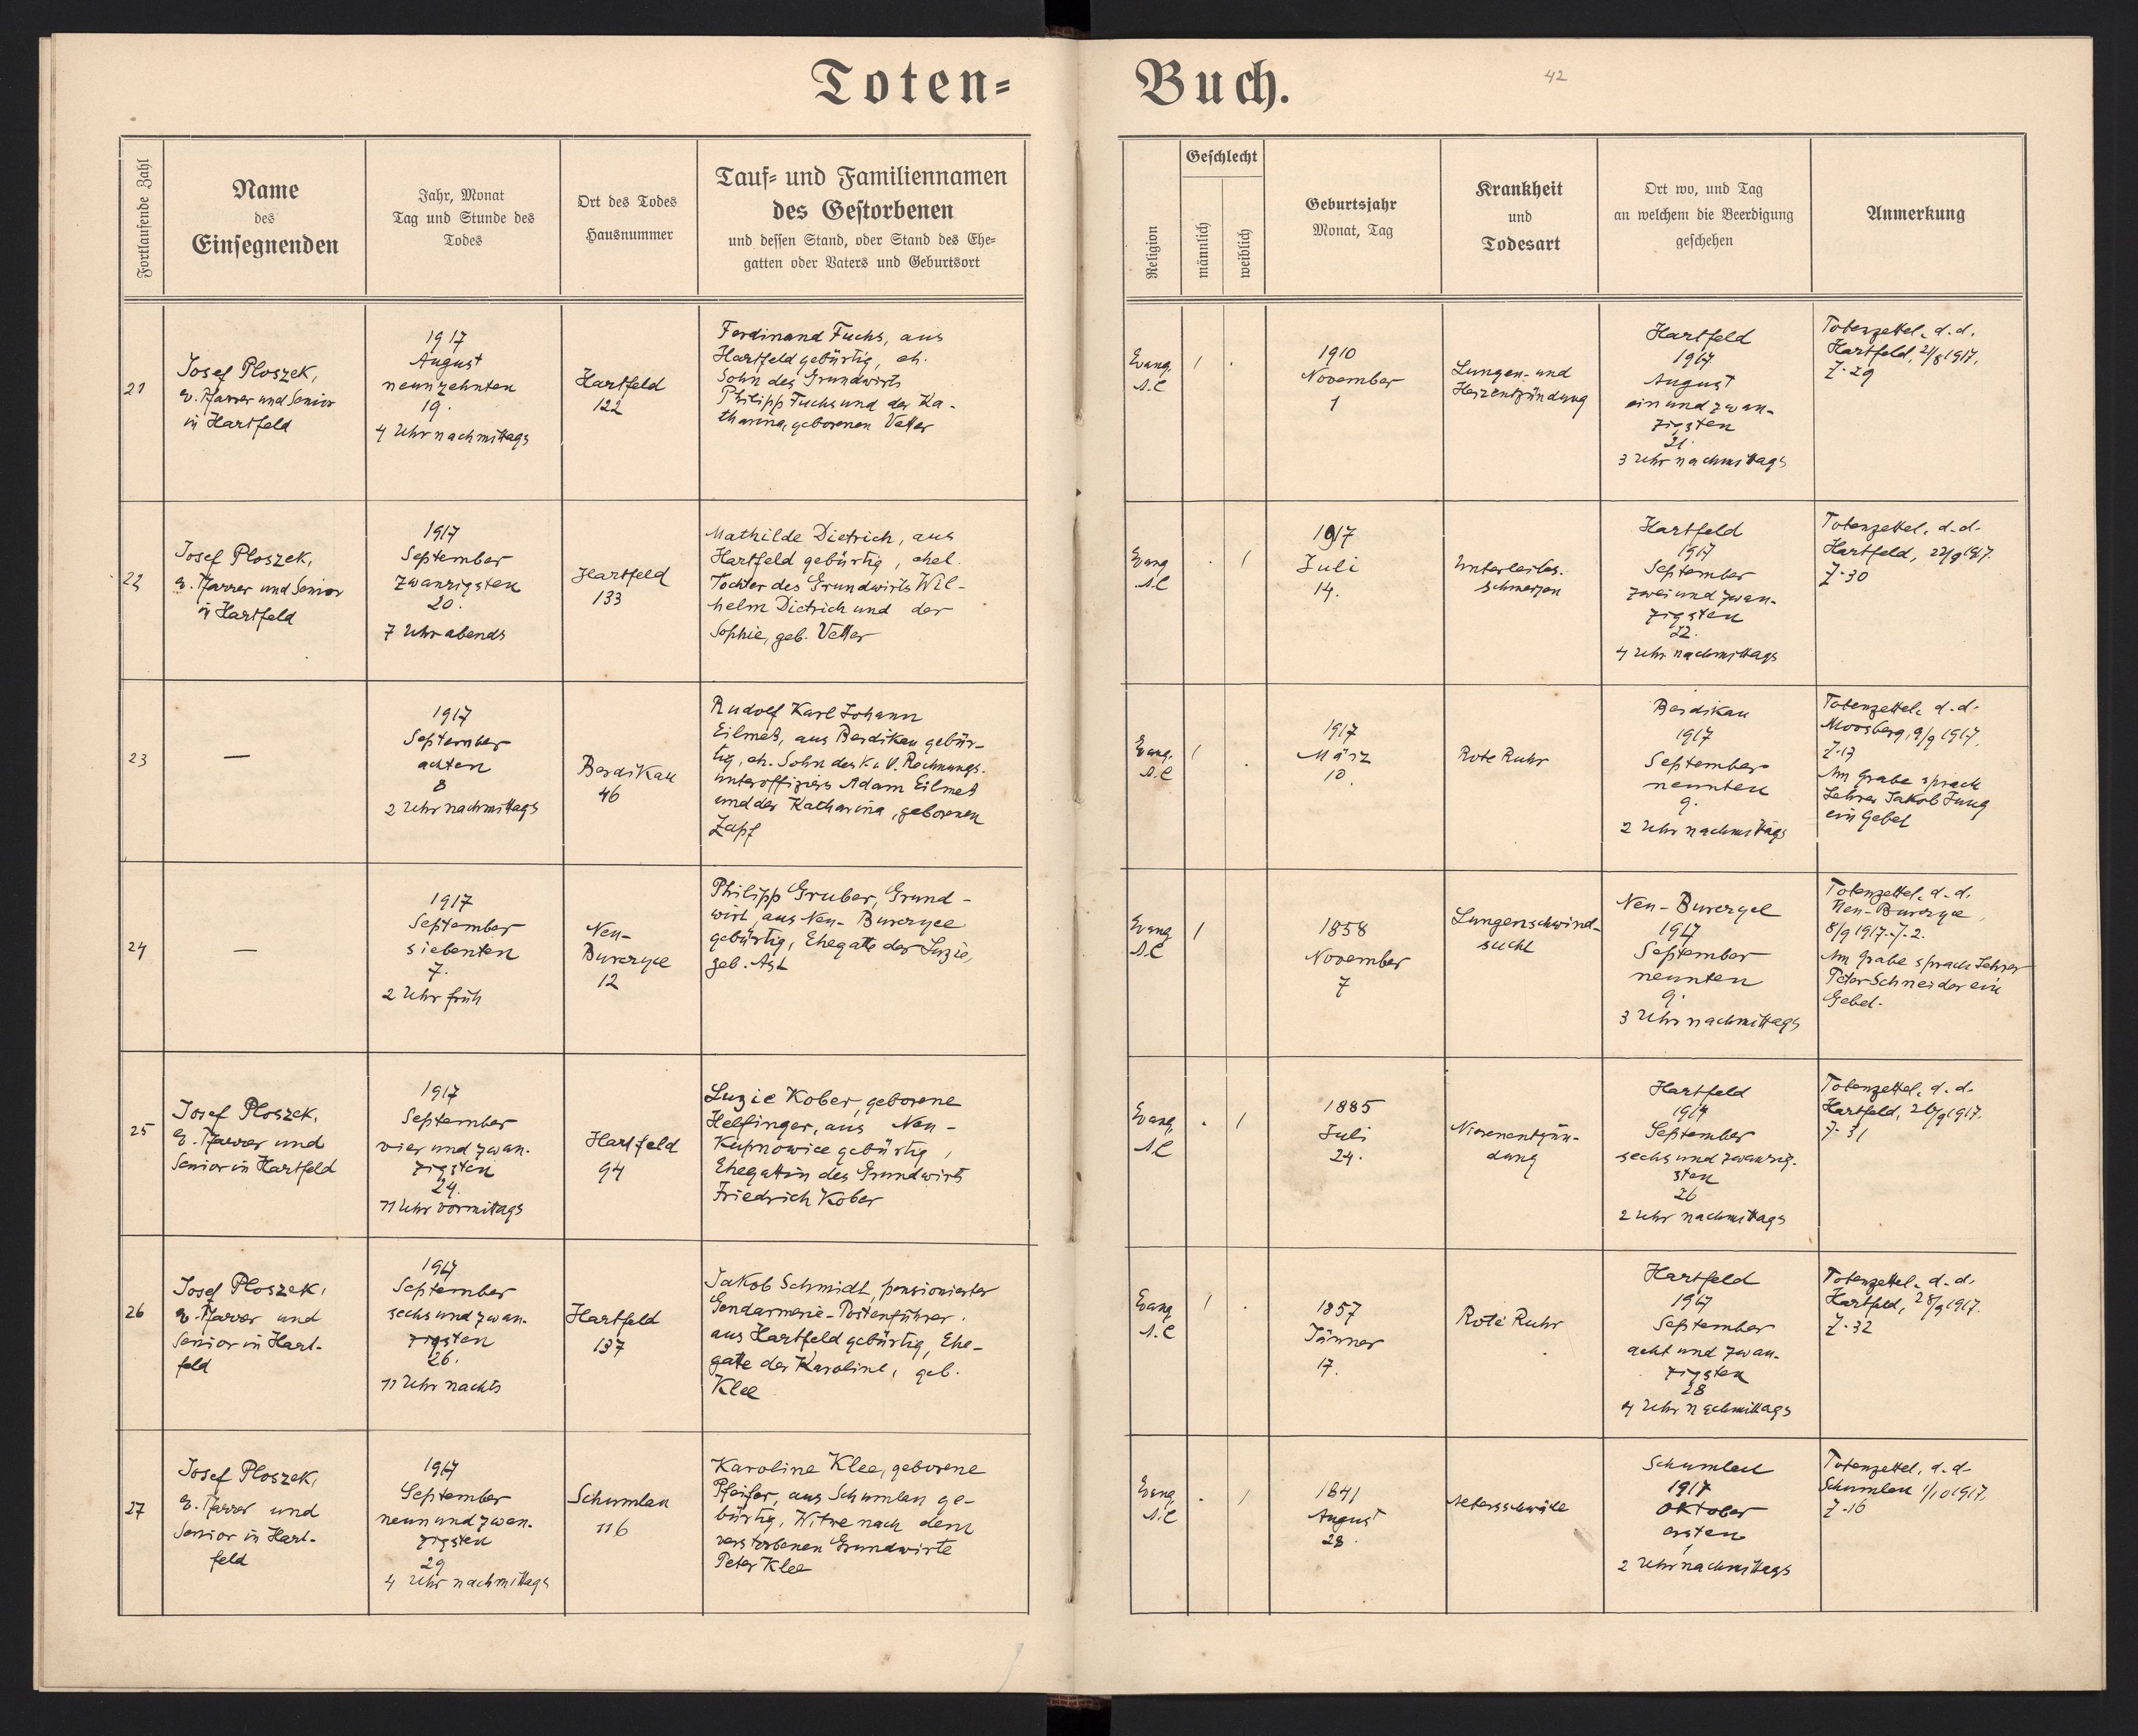 Toten-
Buch.
42
Fortlaufende Zahl
Name
des
Einsegnenden
Jahr, Monat
Tag und Stunde des
Todes
Ort des Todes
Hausnummer
Tauf- und Familiennamen
des Gestorbenen
und dessen Stand, oder Stand des Ehe-
gatten oder Vaters und Geburtsort
Religion
Geschlecht
männlich
weiblich
Geburtsjahr
Monat, Tag
Krankheit
und
Todesart
Ort wo, und Tag
an welchem die Beerdigung
geschehen
Anmerkung
21
Josef Ploszek,
ev. Pfarrer und Senior
in Hartfeld
1917
August
neunzehnten
19.
4 Uhr nachmittags
Hartfeld
122
Ferdinand Fuchs, aus
Hartfeld gebürtig, eh.
Sohn des Grundwirts
Philipp Fuchs und der Ka-
tharina, geborenen Vetter
Evang.
A.C
1
.
1910
November
1
Lungen- und
Herzentzündung
Hartfeld
1917
August
ein und zwan-
zigsten
21.
3 Uhr nachmittags
Totenzettel, d. d.
Hartfeld, 21/8 1917.
Z. 29
22
Josef Ploszek,
ev. Pfarrer und Senior
in Hartfeld
1917
September
zwanzigsten
20.
7 Uhr abends
Hartfeld
133
Mathilde Dietrich, aus
Hartfeld gebürtig, ehel.
Tochter des Grundwirts Wil-
helm Dietrich und der
Sophie, geb. Vetter
Evang
A.C
.
1
1917
Juli
14.
Unterleibs-
schmerzen
Hartfeld
1917
September
zwei und zwan-
zigsten
22.
4 Uhr nachmittags
Totenzettel, d. d.
Hartfeld, 22/9 1917.
Z. 30
23
—
1917
September
achten
8
2 Uhr nachmittags
Berdikau
46
Rudolf Karl Johann
Eilmes, aus Berdikau gebür-
tig, eh. Sohn des k. u. Rechnungs-
unteroffiziers Adam Eilmes
und der Katharina, geborenen
Zapf
Evang.
A.C
1
.
1917
März
10.
Rote Ruhr
Berdikau
1917
September
neunten
9.
2 Uhr nachmittags
Totenzettel, d. d.
Moosberg, 9/9 1917.
Z. 13
Am Grabe sprach
Lehrer Jakob Jung
ein Gebet
24
—
1917
September
siebenten
7.
2 Uhr früh
Neu-
Burczyce
12
Philipp Gruber, Grund-
wirt, aus Neu-Burczyce
gebürtig, Ehegatte der Luzie,
geb. Ast
Evang
A.C
1
1858
November
7
Lungenschwind-
sucht
Neu-Burczyce
1917
September
neunten
9.
3 Uhr nachmittags
Totenzettel, d. d.
Neu-Burczyce,
8/9 1917. Z. 2.
Am Grabe sprach Lehrer
Peter Schneider ein
Gebet.
25
Josef Ploszek,
ev. Pfarrer und
Senior in Hartfeld
1917
September
vier und zwan-
zigsten
24.
11 Uhr vormittags
Hartfeld
94
Luzie Kober, geborene
Helfinger, aus Neu-
Kupnowice gebürtig,
Ehegattin des Grundwirts
Friedrich Kober
Evang.
A.C
.
1
1885
Juli
24.
Nierenentzün-
dung
Hartfeld
1917
September
sechs und zwanzig-
sten
26
2 Uhr nachmittags
Totenzettel, d. d.
Hartfeld, 26/9 1917.
Z. 31
26
Josef Ploszek,
ev. Pfarrer und
Senior in Hart-
feld
1917
September
sechs und zwan-
zigsten
26.
11 Uhr nachts
Hartfeld
137
Jakob Schmidt, pensionierter
Gendarmerie-Postenführer,
aus Hartfeld gebürtig, Ehe-
gatte der Karoline, geb.
Klee
Evang.
A.C
1
.
1857
Jänner
17.
Rote Ruhr
Hartfeld
1917
September
acht und zwan-
zigsten
28
4 Uhr nachmittags
Totenzettel, d. d.
Hartfeld, 28/9 1917.
Z. 32
27
Josef Ploszek,
ev. Pfarrer und
Senior in Hart-
feld
1917
September
neun und zwan-
zigsten
29
4 Uhr nachmittags
Schumlau
116
Karoline Klee, geborene
Pfeifer, aus Schumlau ge-
bürtig, Witwe nach dem
verstorbenen Grundwirte
Peter Klee
Evang.
A.C
.
1
1841
August
28.
Altersschwäche
Schumlau
1917
Oktober
ersten
1
2 Uhr nachmittags
Totenzettel, d. d.
Schumlau 1/10 1917.
Z. 16